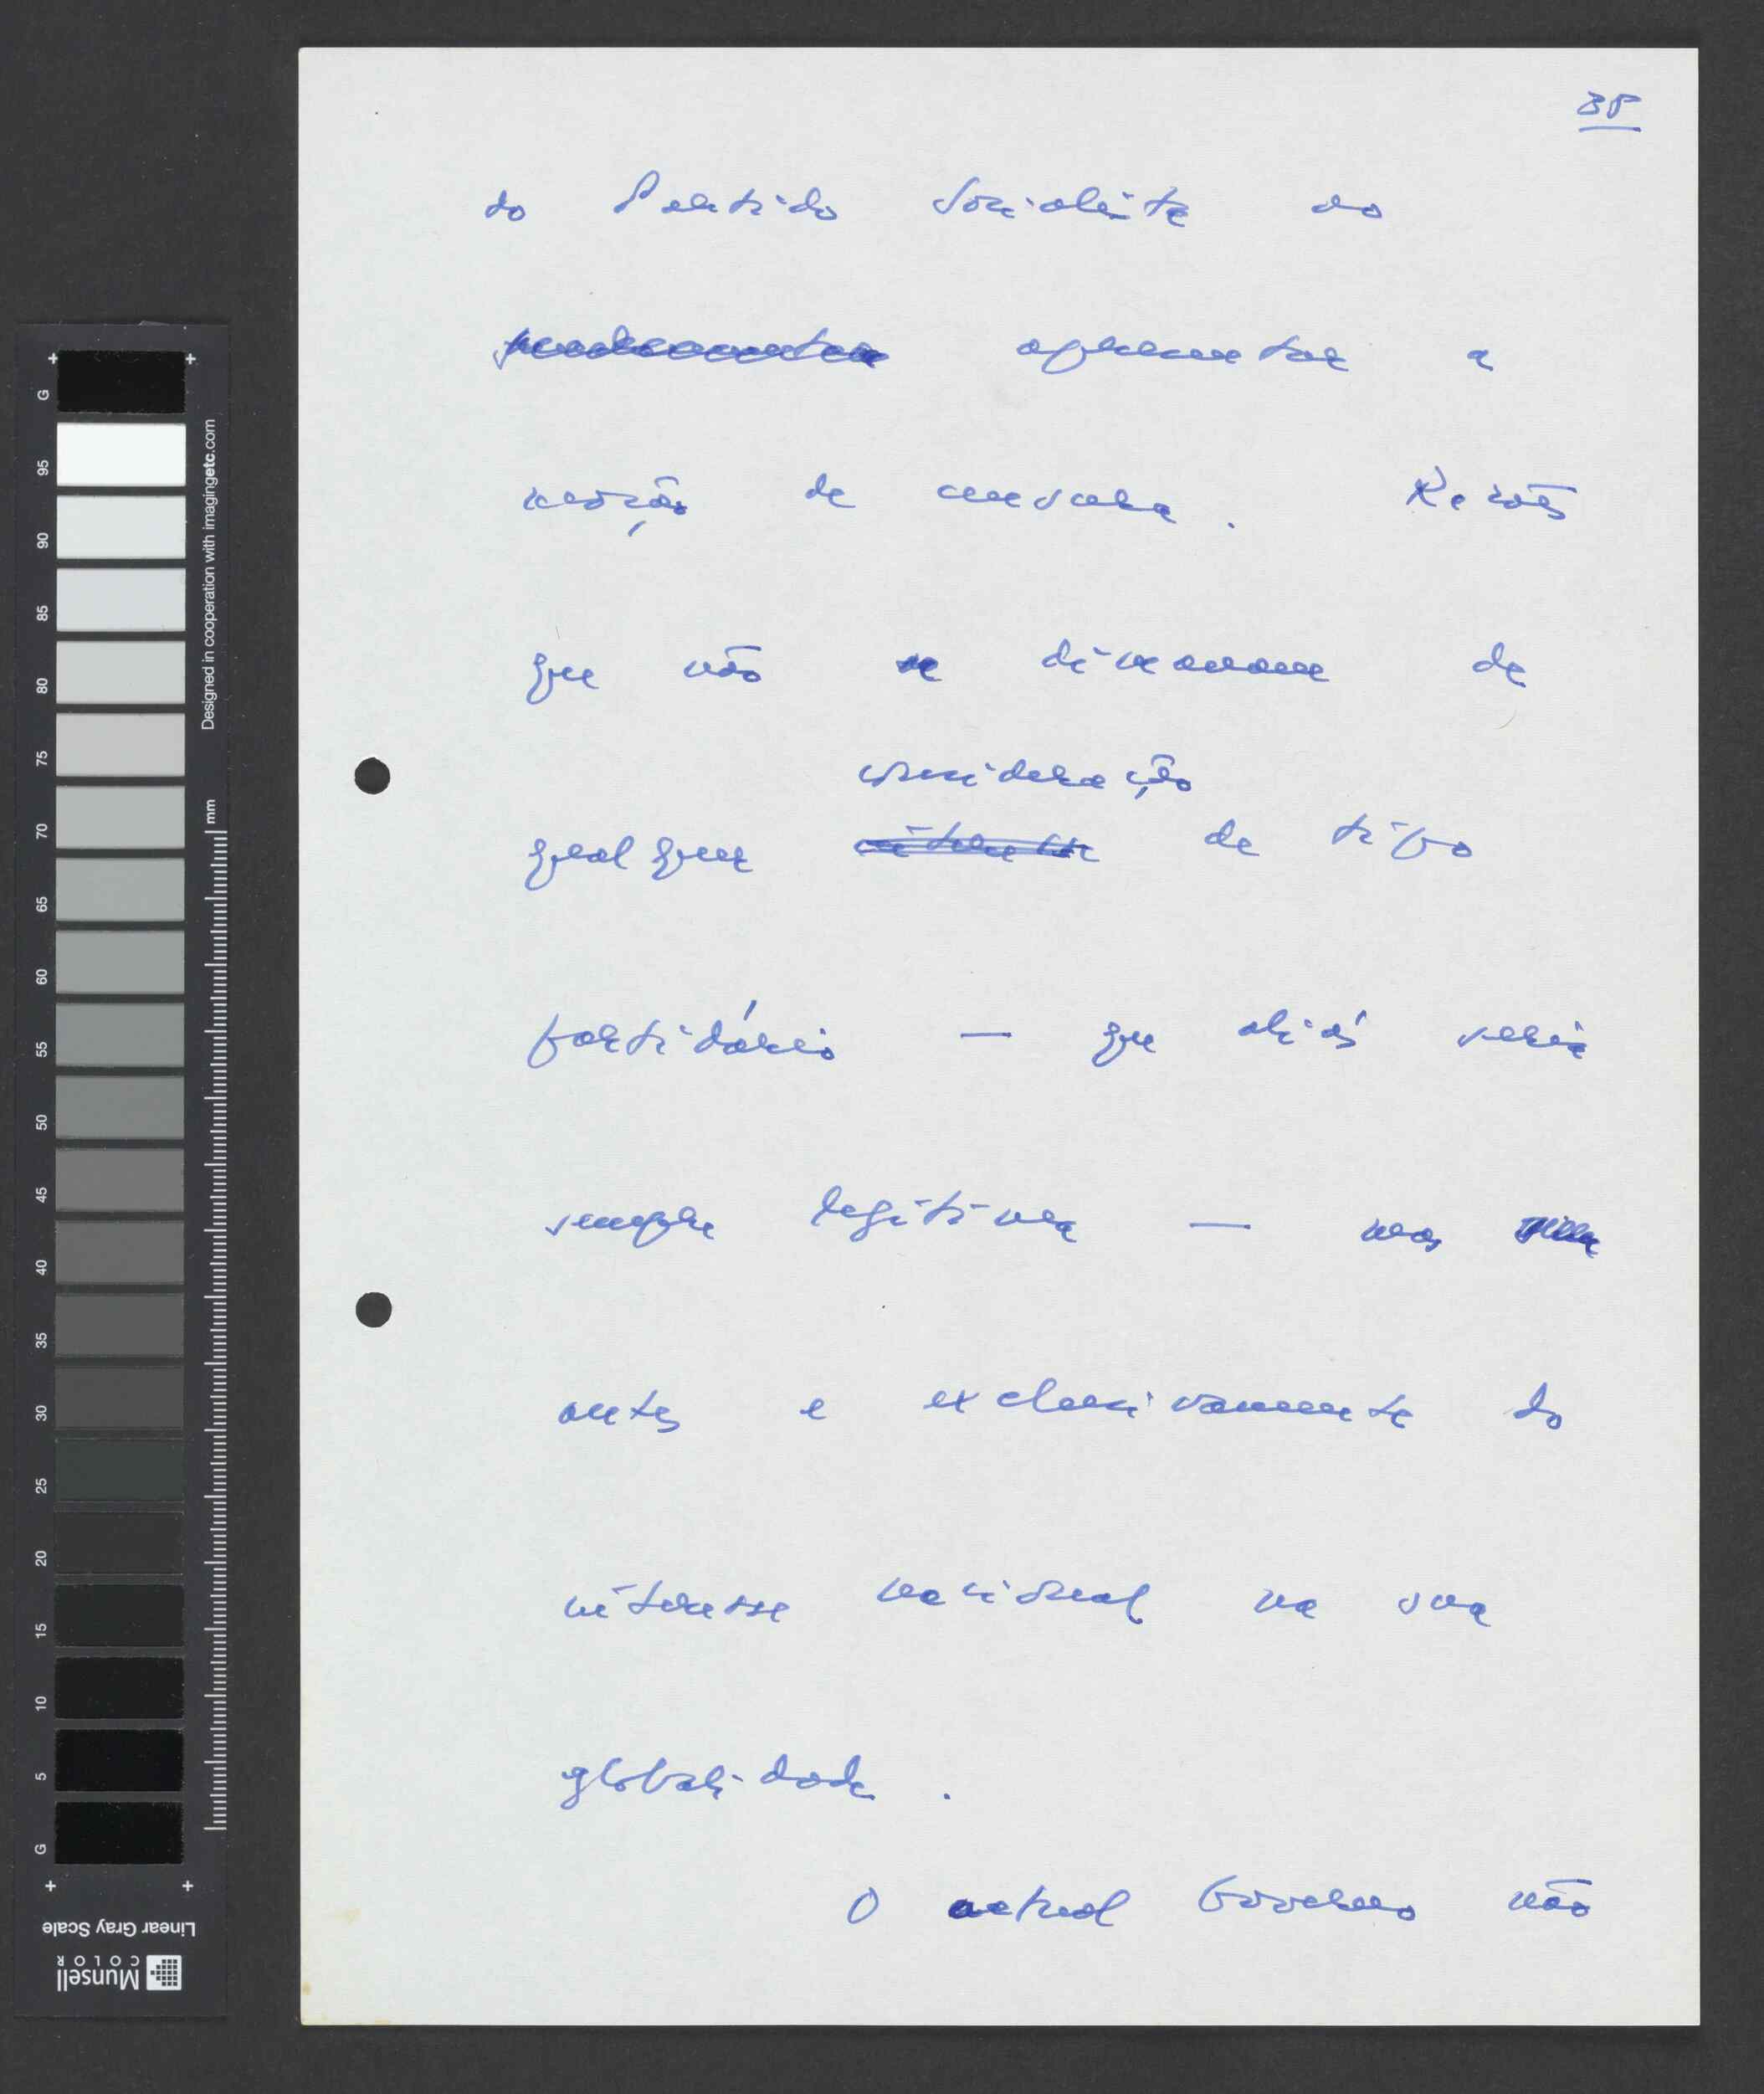 38
do Partido Socialista ao
apresentar a
moção de censura. Razões
que não se dimanam de
consideração
qualquer interesse de tipo
partidário — que aliás seria
sempre legítima — mas
antes e exclusivamente do
interesse nacional na sua
globalidade.
O actual Governo não
G 95 90 85 80 75 70 65 60 55 50 45 40 35 30 25 20 15 10 5 G
Designed in cooperation with imagingetc.com
mm
Linear Gray Scale
Munsell
COLOR